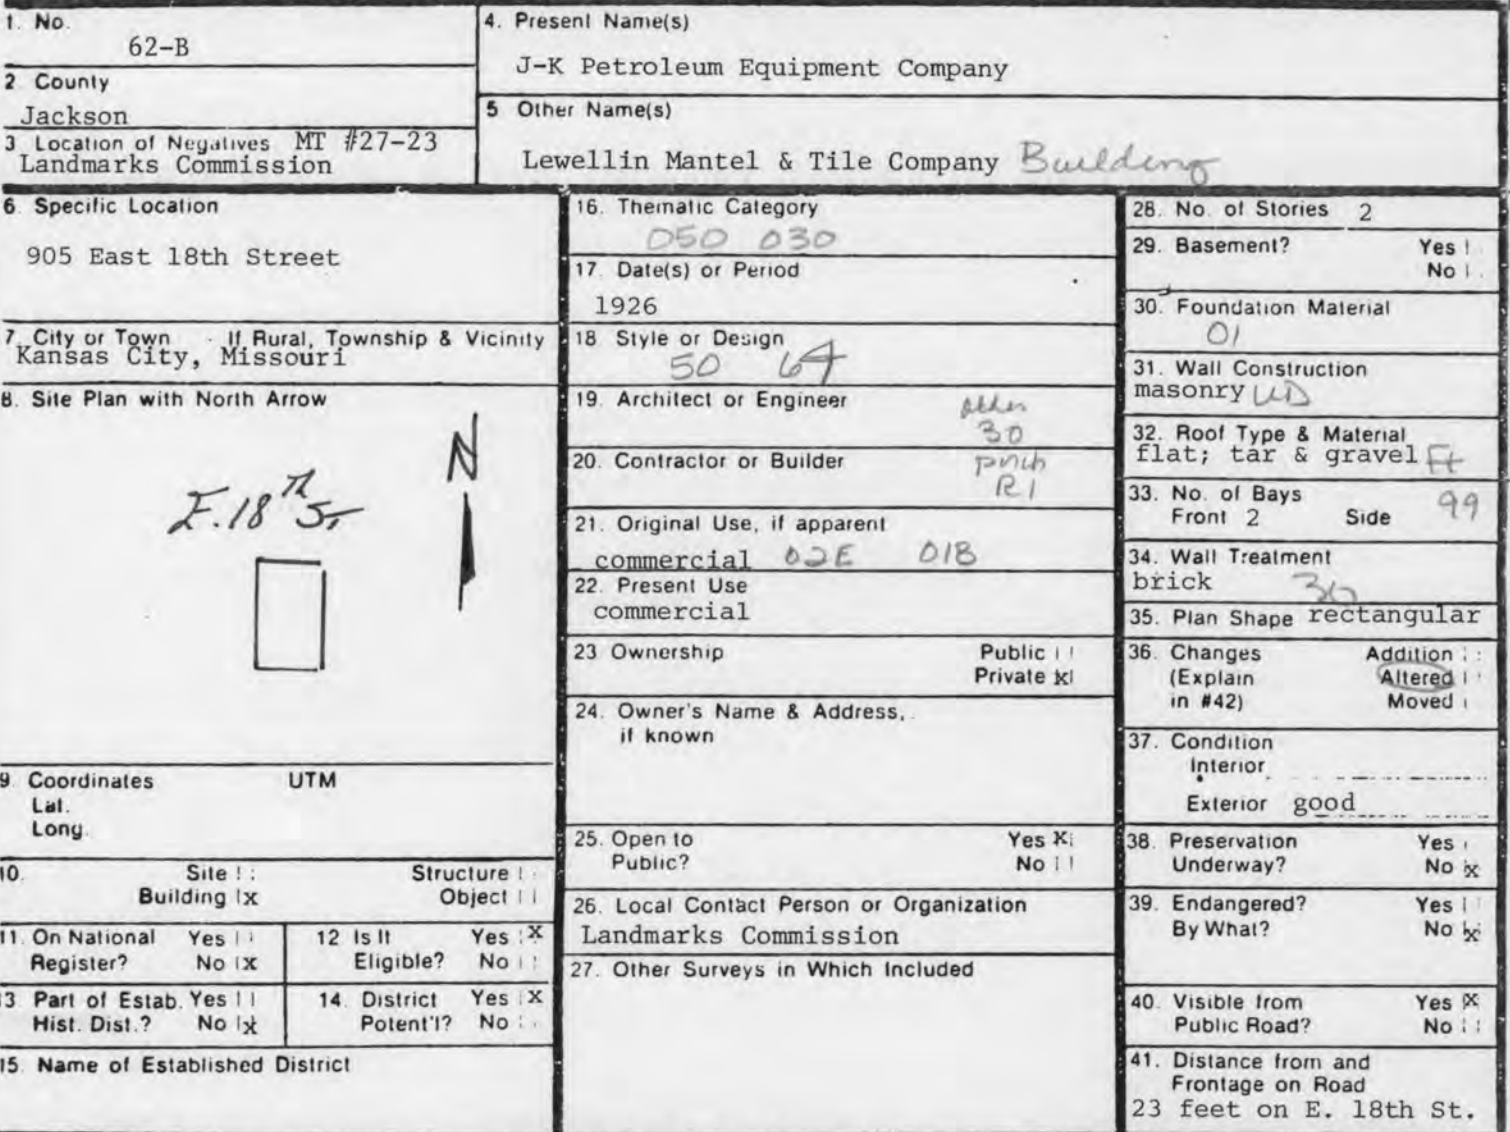 1. No.
62-B
2 County
Jackson
3 Location of Negatives MT #27-23
Landmarks Commission
4. Present Name(s)
J-K Petroleum Equipment Company
5 Other Name(s)
Lewellin Mantel & Tile Company Building
6. Specific Location
905 East 18th Street
7. City or Town If Rural, Township & Vicinity
Kansas City, Missouri
8. Site Plan with North Arrow
N
E. 18th St
9. Coordinates UTM
Lat.
Long.
10. Site Structure
Building x Object
11. On National Register? Yes No x
12 Is It Eligible? Yes x No
13 Part of Estab. Hist. Dist.? Yes No x
14. District Potent'l? Yes x No
15. Name of Established District
16. Thematic Category
050 030
17. Date(s) or Period
1926
18. Style or Design
50 64
19. Architect or Engineer
other
30
20. Contractor or Builder
porch
R1
21. Original Use, if apparent
commercial 02E 01B
22. Present Use
commercial
23 Ownership Public
Private x
24. Owner's Name & Address,
if known
25. Open to Yes x
Public? No
26. Local Contact Person or Organization
Landmarks Commission
27. Other Surveys in Which Included
28. No. of Stories 2
29. Basement? Yes
No
30. Foundation Material
01
31. Wall Construction
masonry UD
32. Roof Type & Material
flat; tar & gravel Ft
33. No. of Bays 99
Front 2 Side
34. Wall Treatment
brick 30
35. Plan Shape rectangular
36. Changes Addition
(Explain Altered
in #42) Moved
37. Condition
Interior
Exterior good
38. Preservation Yes
Underway? No x
39. Endangered? Yes
By What? No x
40. Visible from Yes x
Public Road? No
41. Distance from and
Frontage on Road
23 feet on E. 18th St.